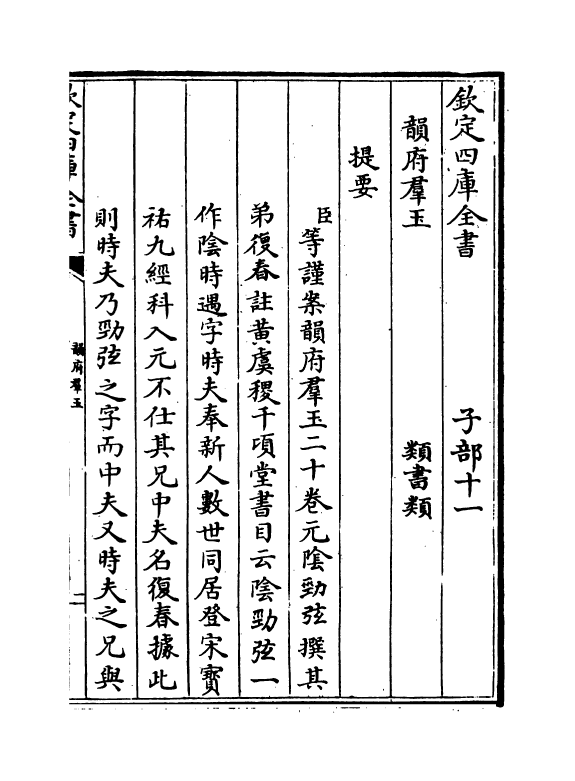 欽定四庫全書 子部十一
韻府羣玉 類書類
提要
臣等謹案韻府羣玉二十卷元陰勁弦撰其
弟復春註黃虞稷千頃堂書目云陰勁弦一
作陰時遇字時夫奉新人數世同居登宋寳
祐九經科入元不仕其兄中夫名復春據此
則時夫乃勁弦之字而中夫又時夫之兄與
欽定四庫全書
韻府羣玉